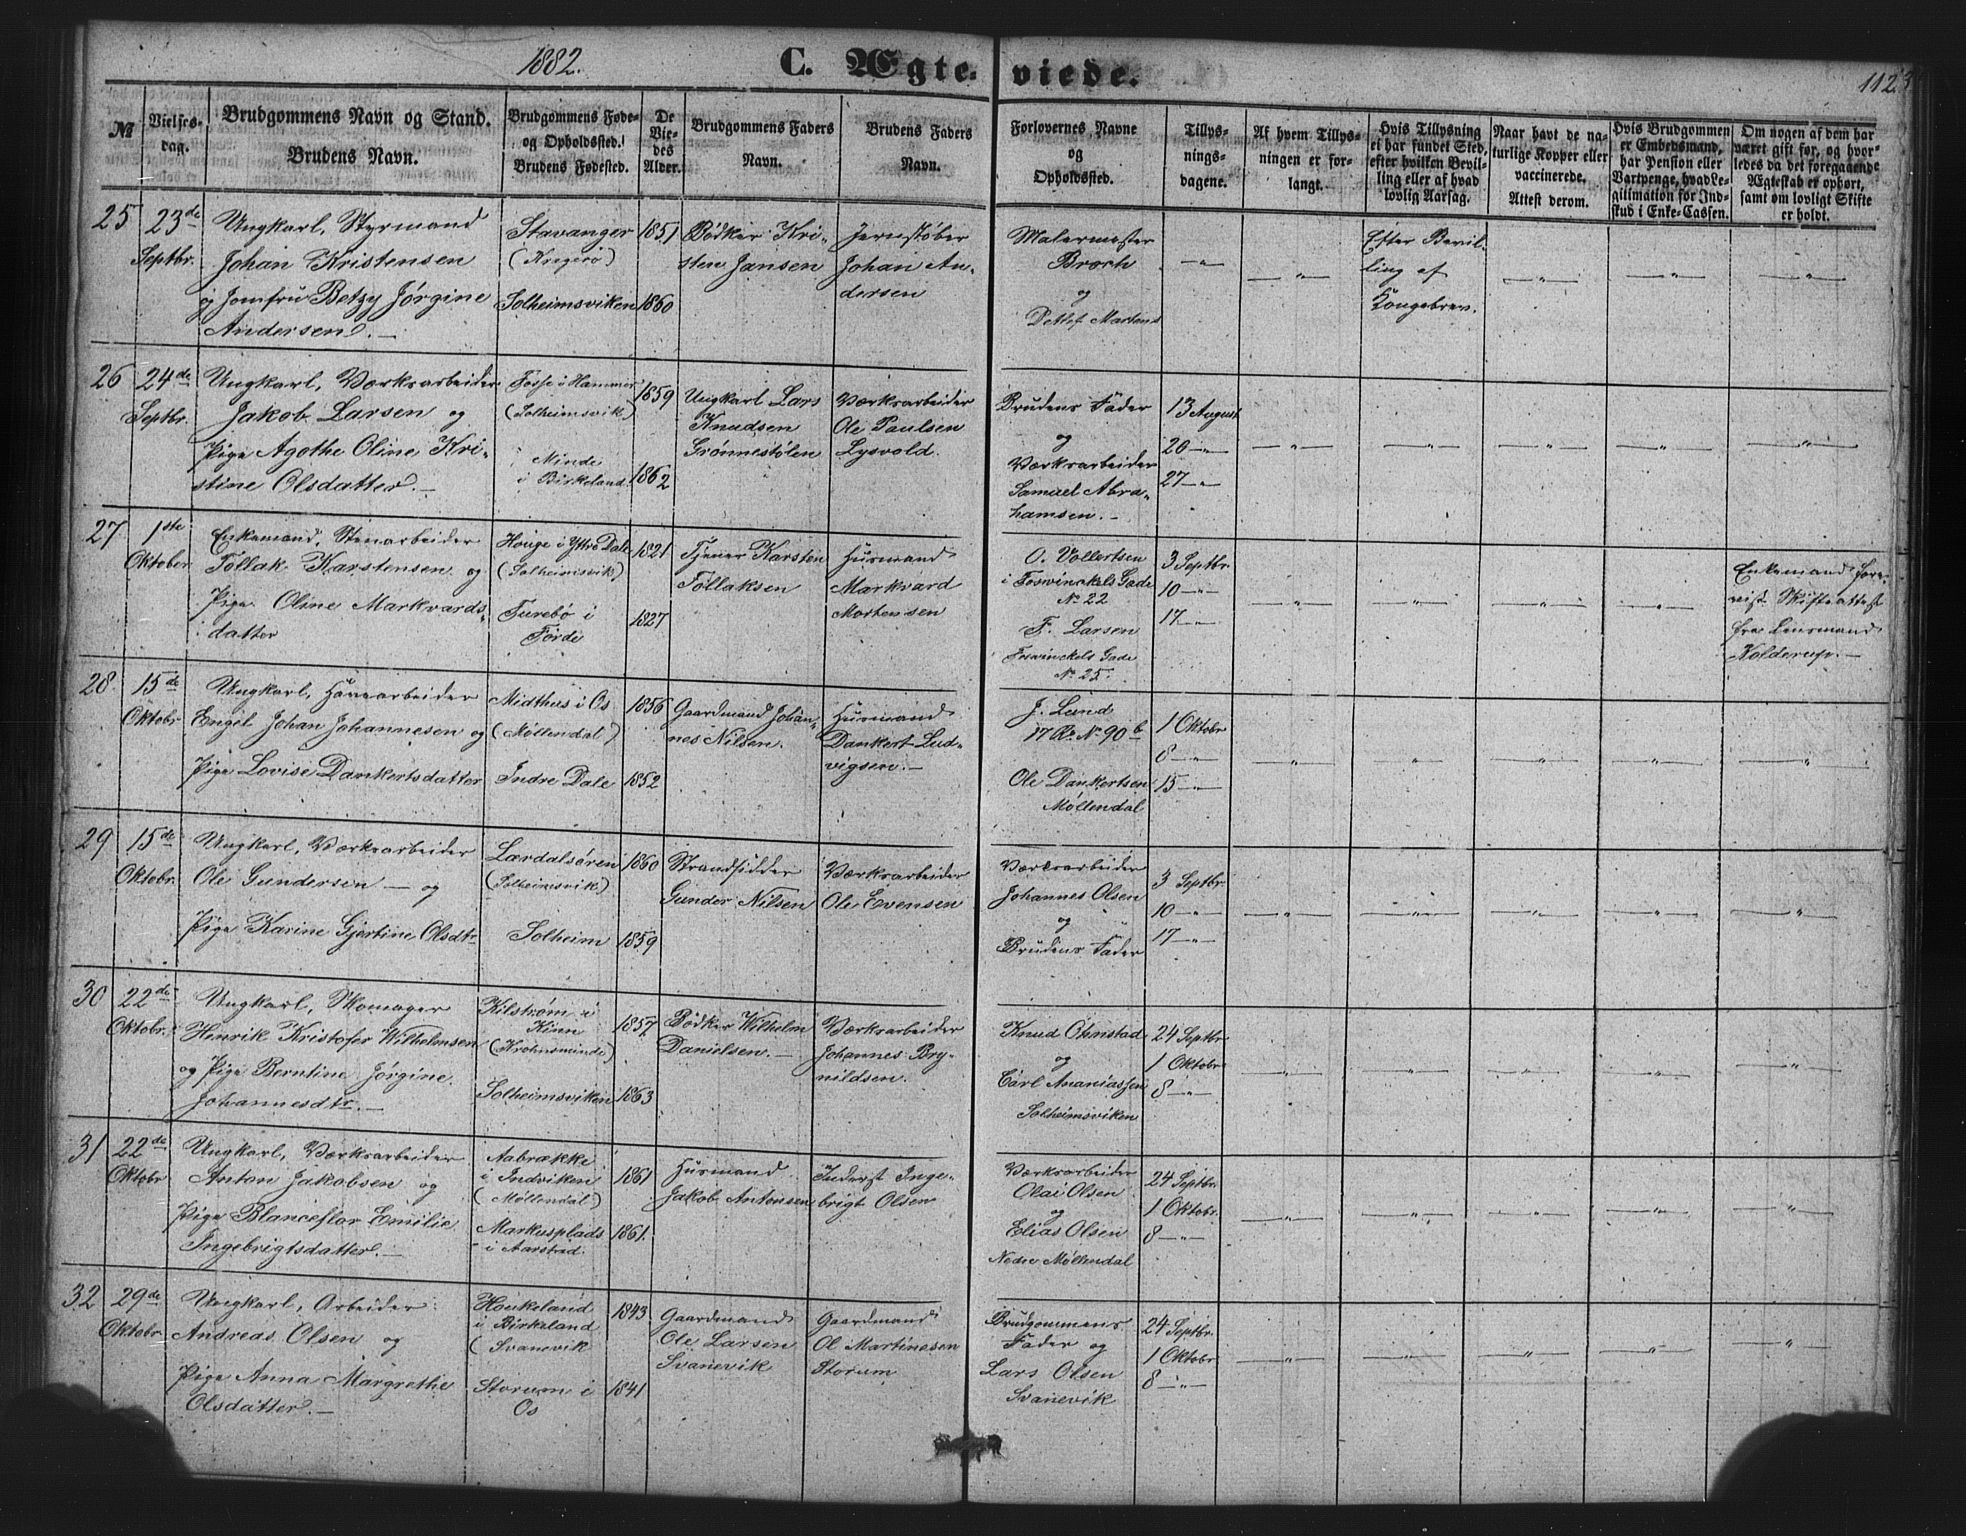 1882.
C. Ægte-viede.
112
№
Vielses-dag.
Brudgommens Navn og Stand.
Brudens Navn.
Brudgommens Føde- og Opholdssted.
Brudens Fødested.
De Viedes Alder.
Brudgommens Faders Navn.
Brudens Faders Navn.
Forlovernes Navne og Opholdssted.
Tillysningsdagene.
Af hvem Tillysningen er forlangt.
Hvis Tillysning ei har fundet Sted, efter hvilken Bevilling eller af hvad lovlig Aarsag.
Naar havt de naturlige Kopper eller vaccinerede.
Attest derom.
Hvis Brudgommen er Embedsmand, har Pension eller Vartpenge, hvad Legitimation for Indskud i Enke-Cassen.
Om nogen af dem har været gift før, og hvorledes da det foregaaende Ægteskab er ophørt, samt om lovligt Skifte er holdt.
25
23de Septbr.
Ungkarl, Styrmand
Johan Kristensen
og Jomfru Betzy Jørgine
Andersen.
Stavanger
(Kragerø)
Solheimsviken
1851
1860
Bødker Kristen Jansen
Jernstøber
Johan Andersen
Malermester
Broch
og
Detlef Martens
Efter Bevilling af
Kongebrev.
26
24de Septbr.
Ungkarl, Værksarbeider
Jakob Larsen og
Pige Agothe Oline Kristine Olsdatter.
Fosse i Hammer
(Solheimsvik)
Minde
i Birkeland
1859
1862
Ungkarl Lars
Knudsen
Grønnestølen
Værksarbeider
Ole Paulsen
Lysvold.
Brudens Fader
og
Værksarbeider
Samuel Abrahamsen.
13 August
20 -"-
27 -"-
27
1ste Oktober
Enkemand, Stenarbeider
Tollak Karstensen og
Pige Oline Markvardsdatter
Houge i Yttre Dale
(Solheimsvik)
Furebø i
Førde
1821
1827
Tjener Karsten
Tollaksen
Husmand
Markvard
Mortensen
O. Vollertsen
i Foswinckels Gade
No 22
F. Larsen
Foswinckels Gade
No 25.
3 Septbr.
10 -"-
17 -"-
Enkemand forevist Skifteattest
fra Lensmand
Kolderup.
28.
15de Oktobr
Ungkarl, Havearbeider
Engel Johan Johannesen og
Pige Lovise Dankertsdatter
Midthus i Os
(Møllendal)
Indre Dale
1856
1852
Gaardmand Johannes Nilsen.
Husmand
Dankert Ludvigsen.
J. Lund
17 R. No 90 b
Ole Dankertsen
Møllendal
1 Oktobr
8 -"-
15 -"-
29
15de Oktobr.
Ungkarl, Værksarbeider
Ole Gundersen og
Pige Karine Gjertine Olsdtr
Lærdalsøren
(Solheimsvik)
Solheim
1860
1859
Strandsidder
Gunder Nilsen
Værksarbeider
Ole Evensen
Værksarbeider
Johannes Olsen
og
Brudens Fader
3 Septbr
10 -"-
17 -"-
30
22de Oktobr.
Ungkarl, Skomager
Henrik Kristofer Wilhelmsen
og Pige Berntine Jørgine
Johannesdtr.
Kilstrøm i
Kinn
(Krohnsminde)
Solheimsviken
1857
1863
Bødker Wilhelm
Danielsen.
Værksarbeider
Johannes Brynildsen.
Knud Ohnstad
og
Carl Ananiassen
Solheimsviken
24 Septbr
1 Oktobr
8 -"-
31
22de Oktobr
Ungkarl, Værksarbeider
Anton Jakobsen og
Pige Blanceflor Emilie
Ingebrigtsdatter.
Aabrække
i Indviken
(Møllendal)
Markusplads
i Aarstad.
1861
1861.
Husmand
Jakob Antonsen
Inderst Ingebrigt Olsen
Værksarbeider
Olai Olsen
og
Elias Olsen
Nedre Møllendal
24 Septbr
1 Oktobr.
8 -"-
32
29de Oktobr
Ungkarl, Arbeider
Andreas Olsen og
Pige Anna Margrethe
Olsdatter.
Houkeland
i Birkeland
(Svanevik
Storum i
Os
1843
1841
Gaardmand
Ole Larsen
Svanevik
Gaardmand
Ol Martinussen
Storum
Brudgommens
Fader og
Lars Olsen
Svanevik
24 Septbr.
1 Oktobr
8 -"-